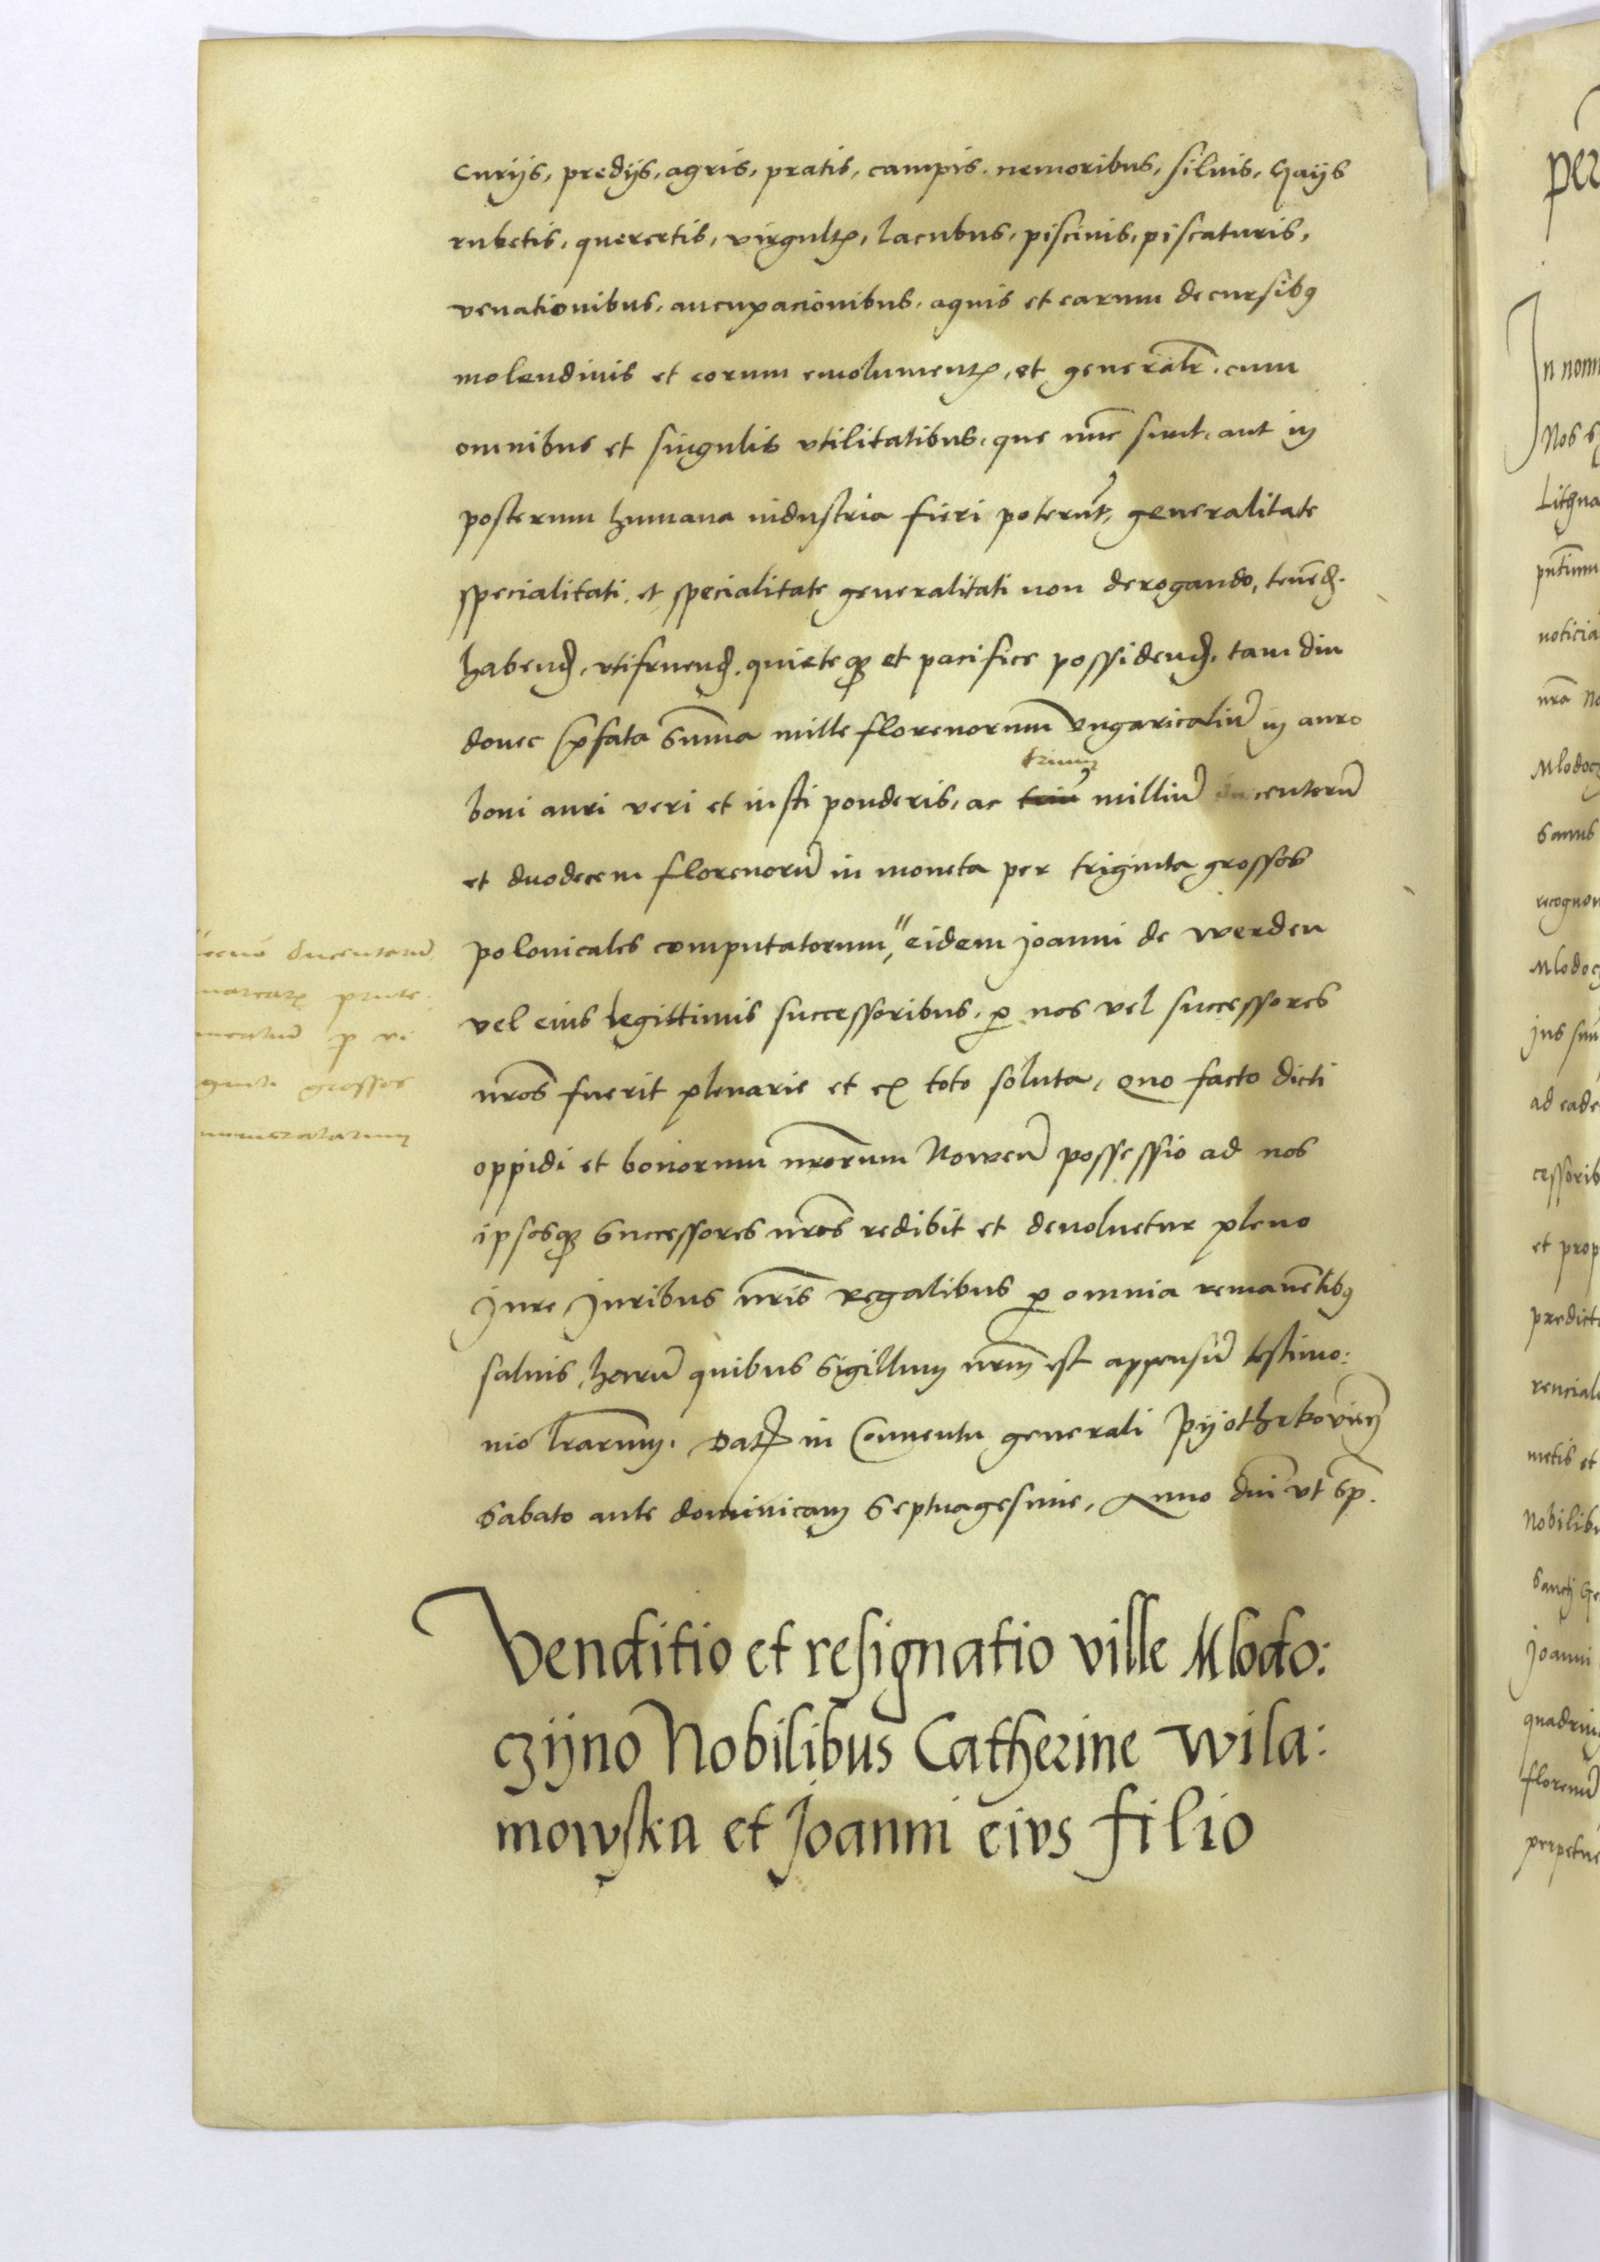 curijs, predijs, agris, pratis, campis, nemoribus, siluis, Gaijs
rubetis, quercetis, virgultꝭ, lacubus, piscinis, piscaturis,
venationibus, aucupacionibus, aquis et earum decursibꝯ
molendinis et eorum emolumentꝭ, et generalr̄, cum
omnibus et singulis vtilitatibus, que nūc sunt, aut in
posterum humana industria fieri poterūt, generalitate
specialitati, et specialitate generalitati non derogando, tenēd.
habend, vtifruend, quieteqꝫ et pacifice possidend, tam diu
donec p̄fata Sum̄a mille florenorum Vngaricaliū in auro
boni auri veri et iusti ponderis, ac trium milliū ducentorū
et duodecem florenorū in moneta per triginta grossos
polonicales computatorum, eidem Joanni de Werden
vel eius legittimis successoribus, ꝑ nos vel successores
nr̄os fuerit plenarie et ex toto soluta, Quo facto dicti
oppidi et bonorum nr̄orum Nowen̄ possessio ad nos
ipsosqꝫ Successores nr̄os redibit et deuoluetur pleno
Jure Juribus nr̄is Regalibus ꝑ omnia remanētibꝯ
saluis, harū quibus Sigillum nr̄m est appensū testimo:
nio lr̄arum. Dat in Conuentu generali Pijothrkovien̄
Sabato ante dominicam Septuagesime, Anno dn̄i vt Sp̄.
Venditio et resignatio ville Mlodo:
czijno Nobilibus Catherine Wila:
mowska et Joanni eius filio
ducentarū
marcarꝭ prute
grossos
numeratarum
per
In nom
Nos
Lithua
noticia
nr̄a
Mlodoc
Sams
recogno
Mlodoc
Jus
ad eade
cessorib
et prop
predict
rencial
metis et
Nobilib
Sancti Ge
Joanni
quadrin
florenū
perpetue